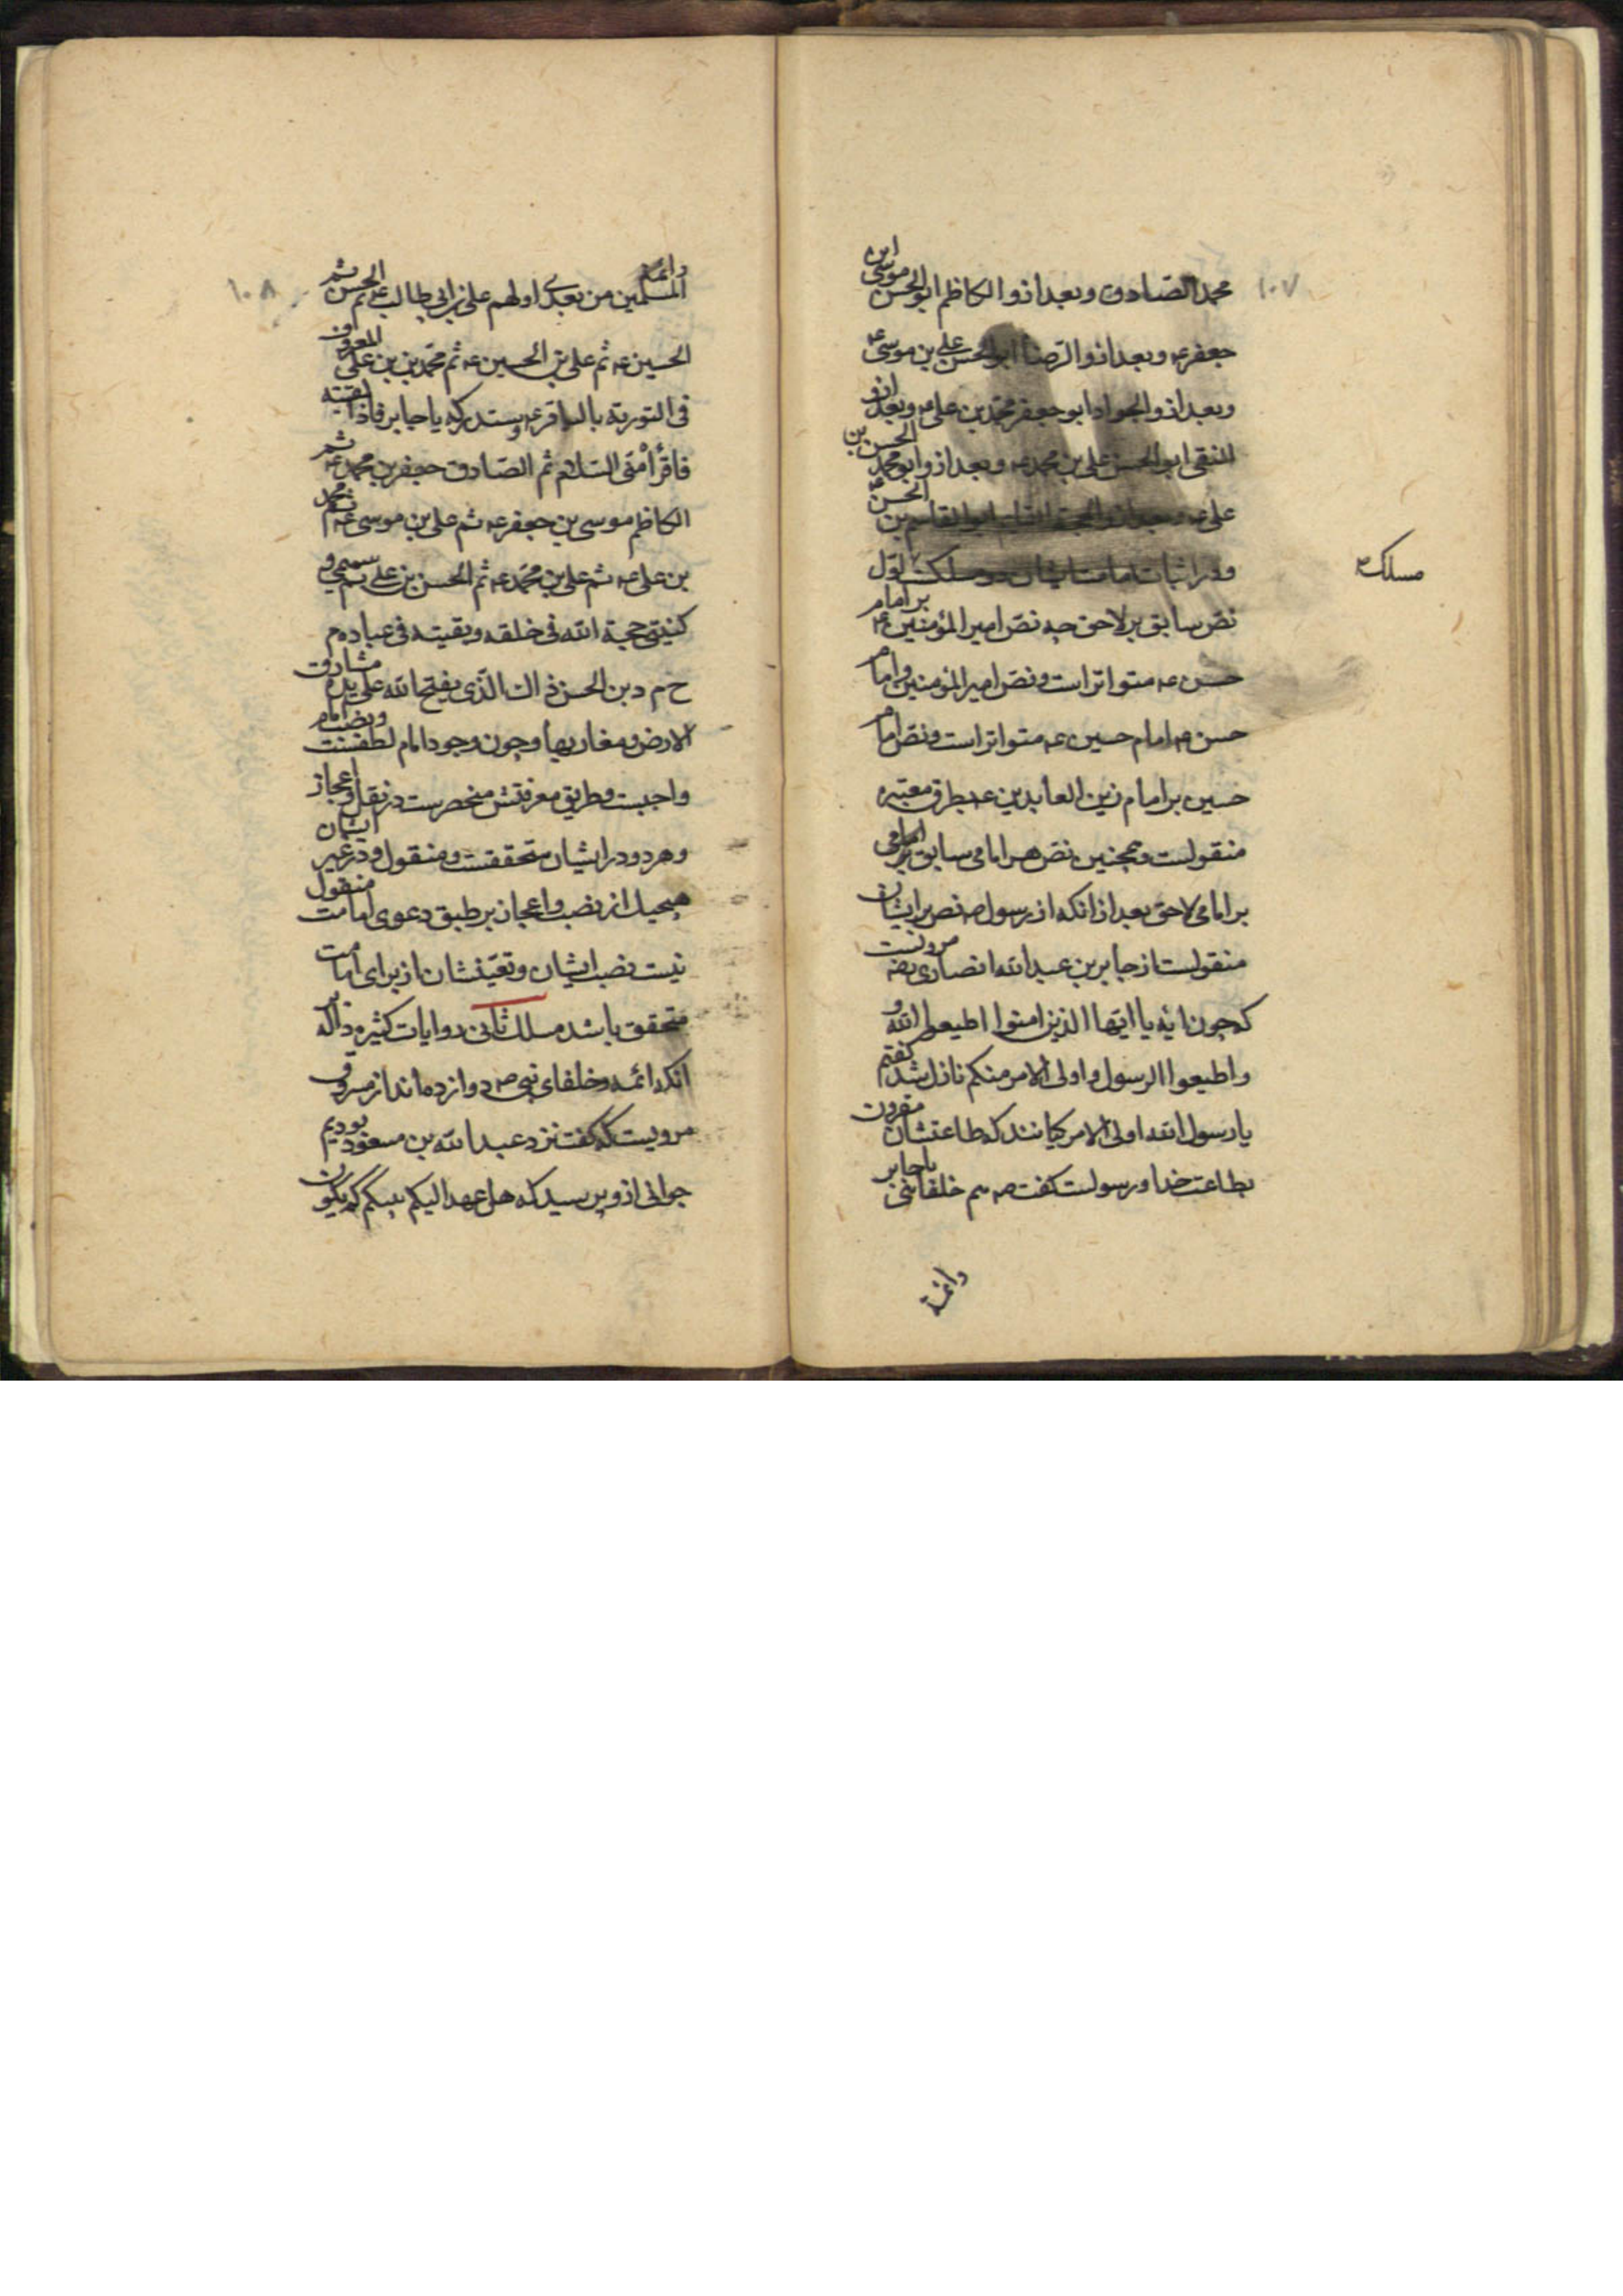 محمد الصادق و بعد ازو الکاظم ابو الحسن موسی ابن
۱۰۷
جعفر عه و بعد ازو الرضا ابو الحسن علی بن موسی عه
و بعد ازو الجواد ابو جعفر محمد بن علی عه و بعد ازو
النقی ابو الحسن علی بن محمد عه و بعد ازو ابو محمد الحسن بن
علی عه و بعد ازو الحجة القایم ابو القاسم بن الحسن عه
و در اثبات امامت ایشان دو مسلکست اول
مسلک
نص سابق بر لاحق چه نص امیر المؤمنین عه بر امام
حسن عه متواتر است و نص امیر المؤمنین و امام
حسن عه امام حسین عه متواتر است و نص امام
حسین بر امام زین العابدین عه بطرق معتبره
منقولست و همچنین نص هر امامی سابق بر امامی
بر امامی لاحق بعد از انکه از رسول صه نص بر ایشان
منقولست از جابر بن عبد الله انصاری رضه مرویست
که چون ایه یا ایها الذین امنوا اطیعوا الله و
و اطیعوا الرسول و اولی الامر منکم نازل شد گفتم
یا رسول الله اولی الامر کیانند که طاعتشان مقرون
بطاعت خدا و رسولست گفت صه هم خلفائی یا جابر
وائمة
وائمة
المسلمین من بعدی اولهم علی بن ابی طالب عه ثم الحسن ثم
۱۰۸
الحسین عه ثم علی بن الحسین عه ثم محمد بن بن علی المعروف
فی التوریة بالباقر عه و ستدرکه یا جابر فاذا لقیته
فاقرأ منی السلام ثم الصادق جعفر بن محمد عه ثم
الکاظم موسی بن جعفر عه ثم علی بن موسی عه ثم محمد
بن علی عه ثم علی بن محمد عه ثم الحسن بن علی ثم سمیی و
کنیتی حجة الله فی خلقه و بقیته فی عباده م
ح م د بن الحسن ذاک الذی یفتح الله علی یده مشارق
الارض و مغاربها و چون وجود امام لطفست و نصب امام
واجبست و طریق معرفتش منحصرست در نقل و اعجاز
و هر دو در ایشان متحققست و منقول و در غیر ایشان
هیچیک از نصب و اعجاز بر طبق دعوی امامت منقول
نیست نصب ایشان و تعینشان از برای امامت
متحقق باشد مسلک ثانی روایات کثیره داله بر
انکه ائمه و خلفای نبی صه دوازده اند از مسروق
مرویست که گفت نزد عبد الله بن مسعود بودیم
جوانی از وپرسید که هل عهد الیکم نبیکم کم یکون